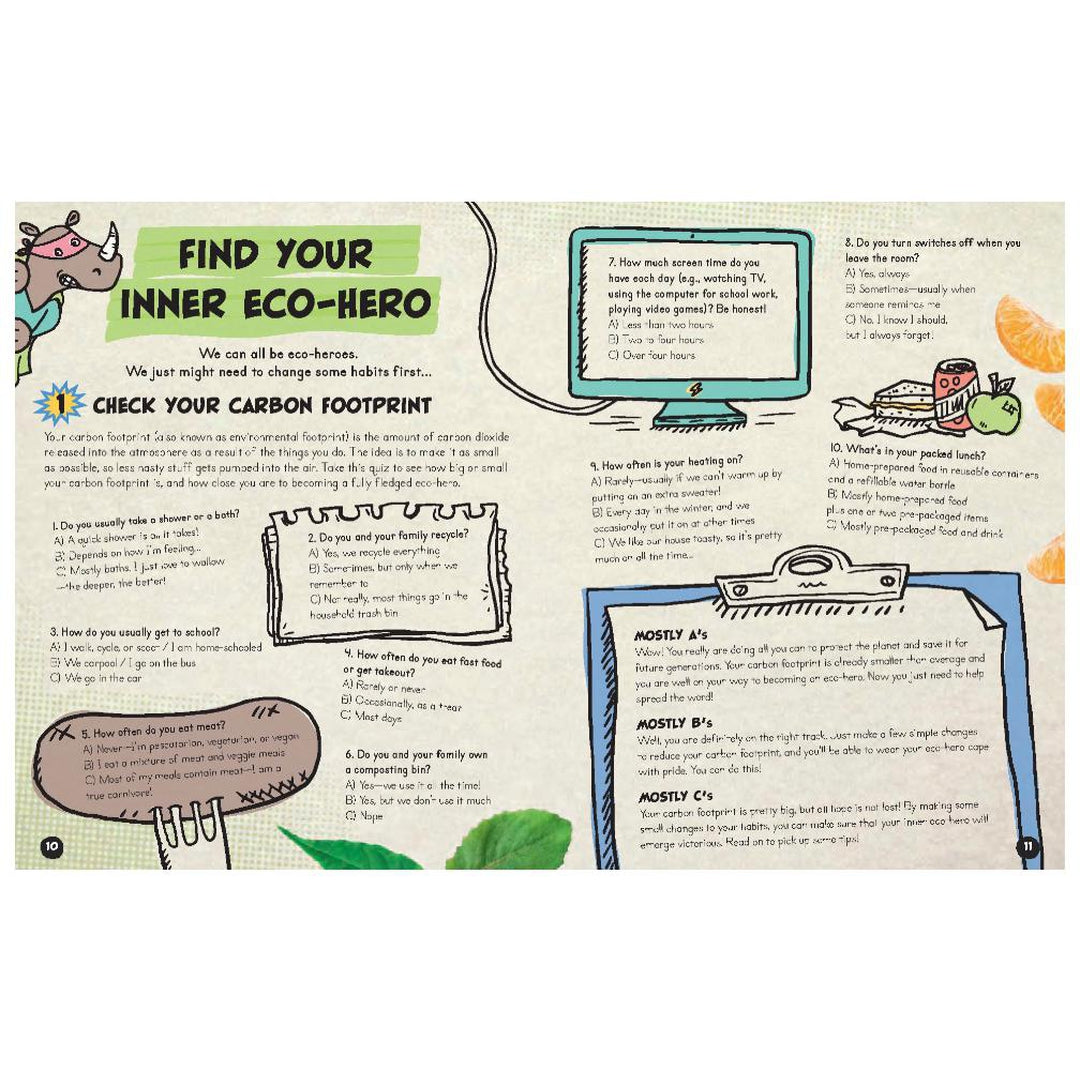 FIND YOUR
INNER ECO-HERO
We can all be eco-heroes.
We just might need to change some habits first...
1 CHECK YOUR CARBON FOOTPRINT
Your carbon footprint (also known as environmental footprint) is the amount of carbon dioxide
released into the atmosphere as a result of the things you do. The idea is to make it as small
as possible, so less nasty stuff gets pumped into the air. Take this quiz to see how big or small
your carbon footprint is, and how close you are to becoming a fully fledged eco-hero.
1. Do you usually take a shower or a bath?
A) A quick shower is all it takes!
B) Depends on how I'm feeling...
C) Mostly baths. I just love to wallow
—the deeper, the better!
2. Do you and your family recycle?
A) Yes, we recycle everything
B) Sometimes, but only when we
remember to
C) Not really, most things go in the
household trash bin
3. How do you usually get to school?
A) I walk, cycle, or scoot / I am home-schooled
B) We carpool / I go on the bus
C) We go in the car
4. How often do you eat fast food
or get takeout?
A) Rarely or never
B) Occasionally, as a treat
C) Most days
5. How often do you eat meat?
A) Never—I'm pescatarian, vegetarian, or vegan
B) I eat a mixture of meat and veggie meals
C) Most of my meals contain meat—I am a
true carnivore!
6. Do you and your family own
a composting bin?
A) Yes—we use it all the time!
B) Yes, but we don't use it much
C) Nope
10
7. How much screen time do you
have each day (e.g., watching TV,
using the computer for school work,
playing video games)? Be honest!
A) Less than two hours
B) Two to four hours
C) Over four hours
8. Do you turn switches off when you
leave the room?
A) Yes, always
B) Sometimes—usually when
someone reminds me
C) No. I know I should,
but I always forget!
9. How often is your heating on?
A) Rarely—usually if we can't warm up by
putting on an extra sweater!
B) Every day in the winter, and we
occasionally put it on at other times
C) We like our house toasty, so it's pretty
much on all the time...
10. What's in your packed lunch?
A) Home-prepared food in reusable containers
and a refillable water bottle
B) Mostly home-prepared food
plus one or two pre-packaged items
C) Mostly pre-packaged food and drink
MOSTLY A's
Wow! You really are doing all you can to protect the planet and save it for
future generations. Your carbon footprint is already smaller than average and
you are well on your way to becoming an eco-hero. Now you just need to help
spread the word!
MOSTLY B's
Well, you are definitely on the right track. Just make a few simple changes
to reduce your carbon footprint, and you'll be able to wear your eco-hero cape
with pride. You can do this!
MOSTLY C's
Your carbon footprint is pretty big, but all hope is not lost! By making some
small changes to your habits, you can make sure that your inner eco-hero will
emerge victorious. Read on to pick up some tips!
11